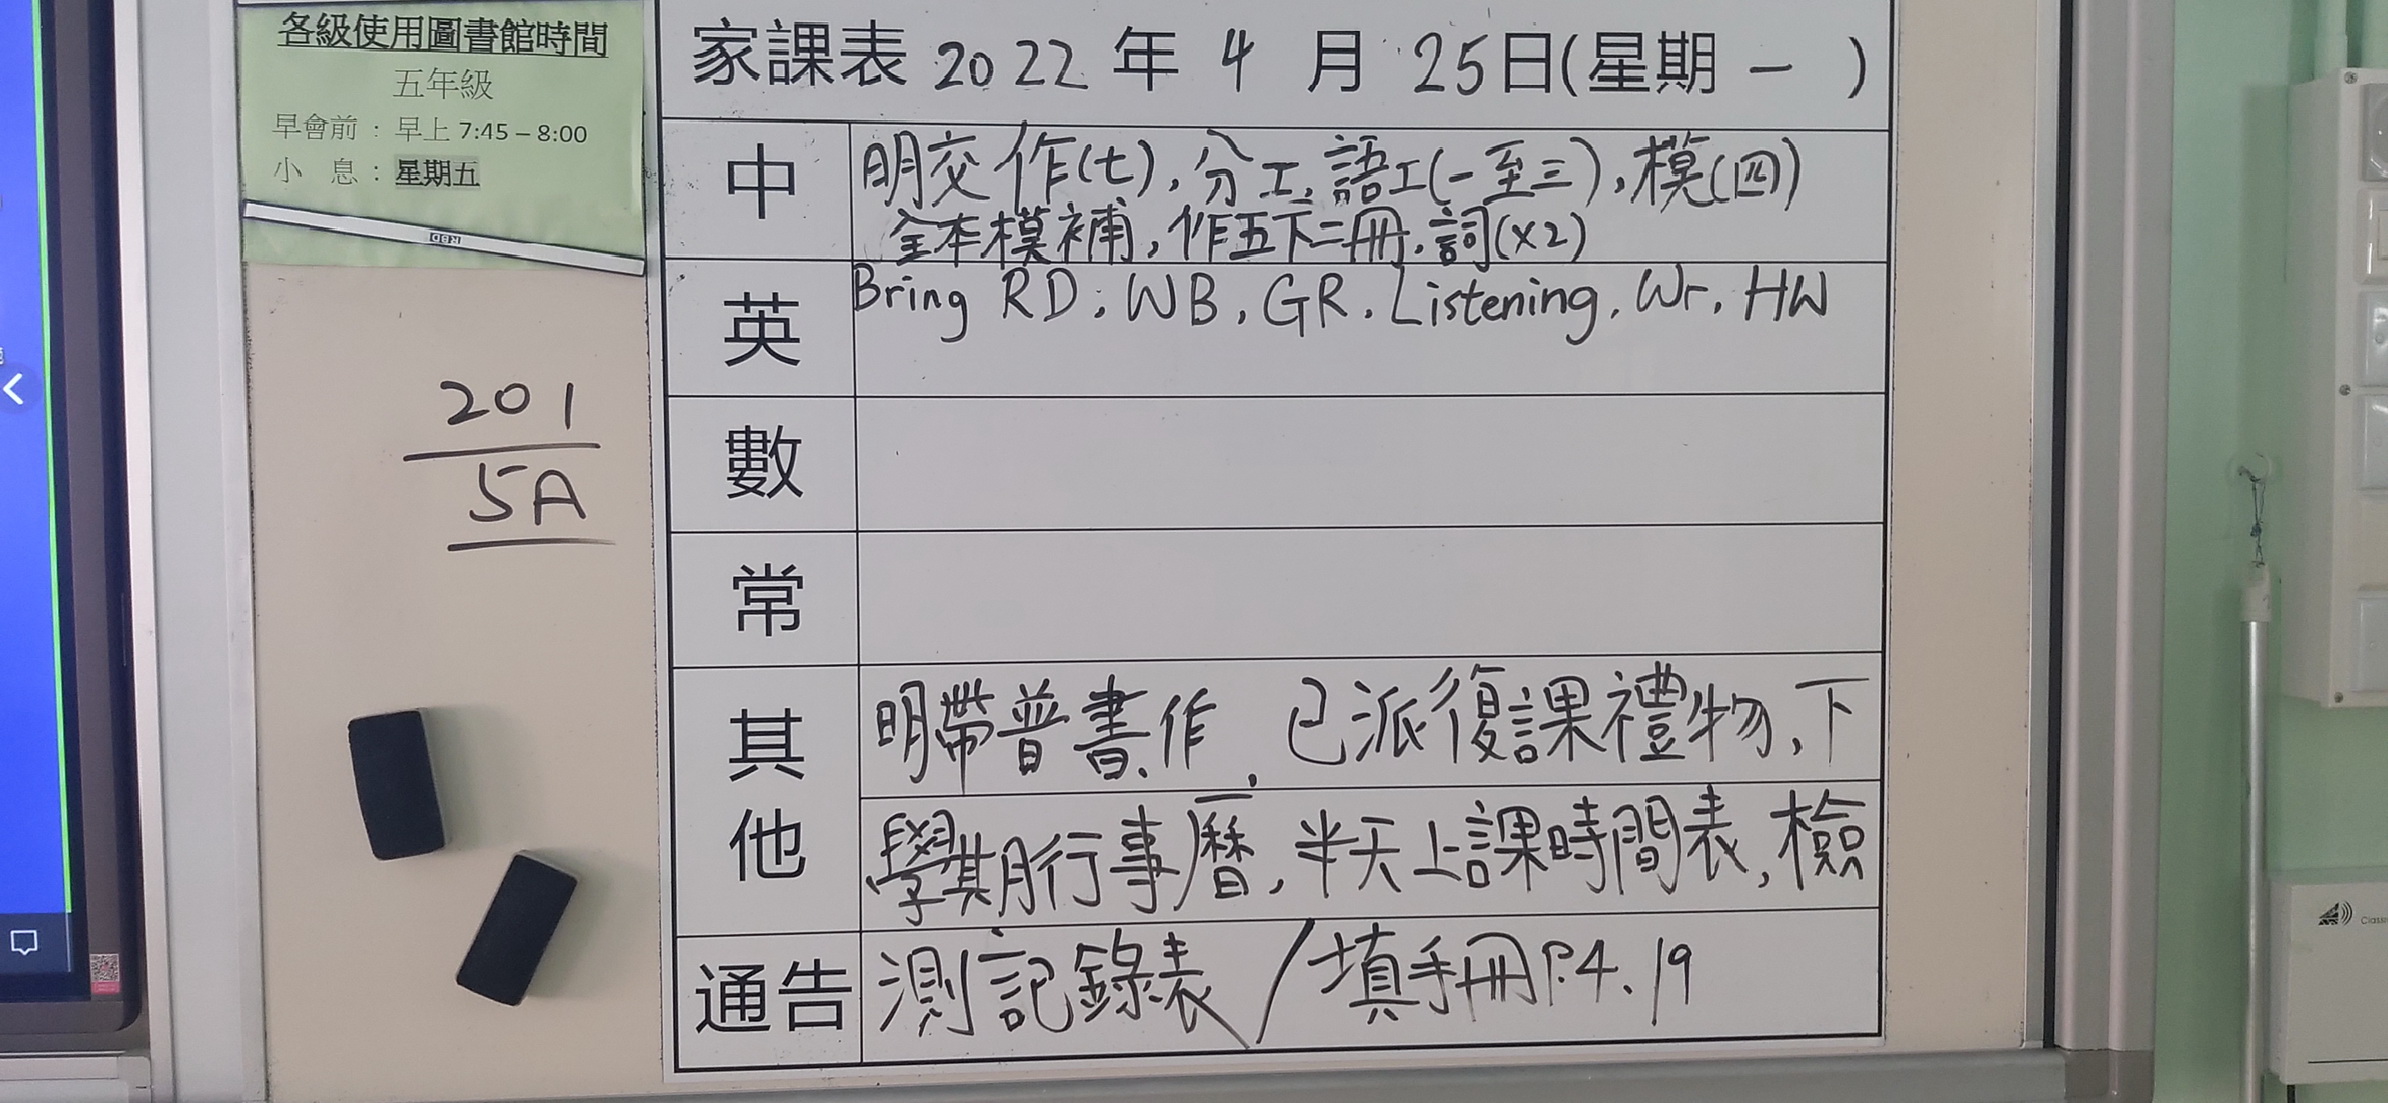 各級使用圖書館時間
五年級
早會前：早上 7:45 – 8:00
小　息：星期五
201
5A
家課表 2022 年 4 月 25日(星期一)
中
明交作(七), 分工, 語工(一至三), 模(四)
全本模補, 作五下二冊, 詞(x2)
英
Bring RD, WB, GR, Listening, Wr, HW
數
常
其他
明帶普書、作, 已派復課禮物, 下
學期行事曆, 半天上課時間表, 檢
通告
測記錄表/填手冊P.4、19